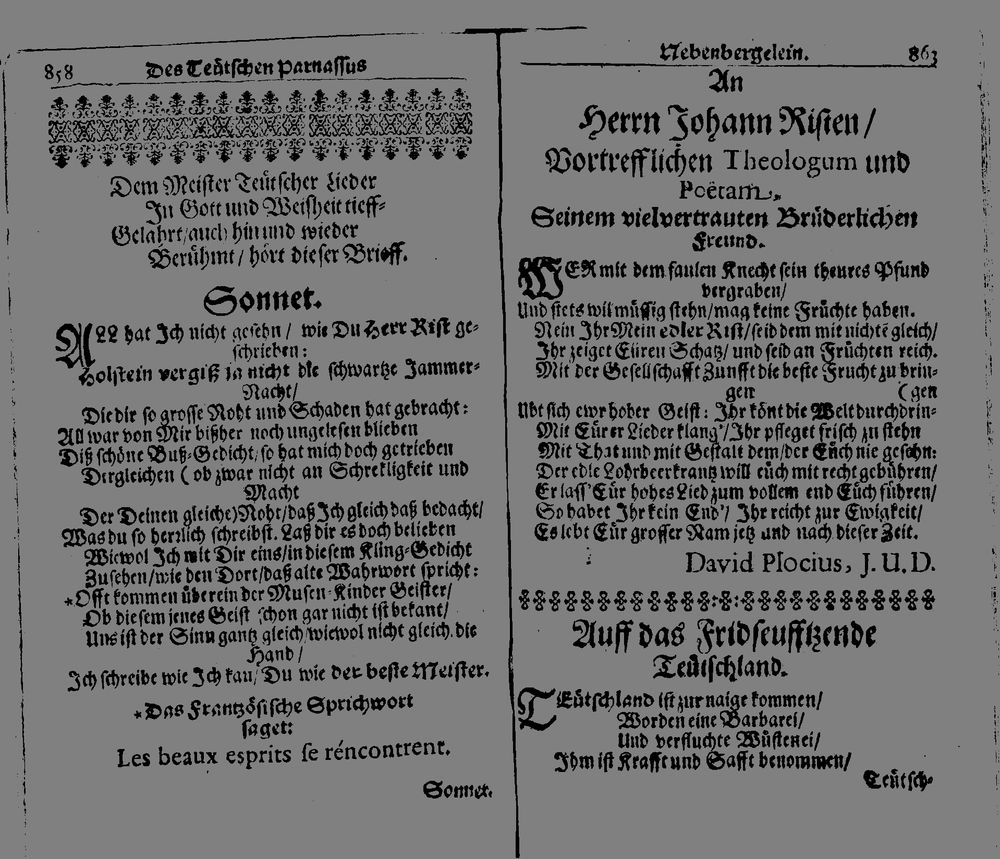 858 Des Teütschen Parnassus
Dem Meister Teütscher Lieder
In Gott und Weisheit tieff-
Gelahrt/auch hin und wieder
Berühmt/ hört dieser Brieff.
Sonnet.
ALL hat Ich nicht gesehn/ wie Du Herr Rist ge-
schrieben:
Holstein vergiß ja nicht die schwartze Jammer-
Nacht/
Die dir so grosse Noht und Schaden hat gebracht:
All war von Mir bißher noch ungelesen blieben
Diß schöne Buß-Gedicht/ so hat mich doch getrieben
Dergleichen (ob zwar nicht an Schrekligkeit und
Macht
Der Deinen gleiche) Noht/ daß Ich gleich daß bedacht/
Was du so herrlich schreibst. Laß dir es doch belieben
Wiewol Ich mit Dir eins/ in diesem Kling-Gedicht
Zusehen/ wie den Dort/ daß alte Wahrwort spricht:
*Offt kommen überein der Musen-Kinder Geister/
Ob diesem jenes Geist schon gar nicht ist bekant/
Uns ist der Sinn gantz gleich/ wiewol nicht gleich die
Hand/
Ich schreibe wie Ich kan/ Du wie der beste Meister.
*Das Frantzösische Sprichwort
saget:
Les beaux esprits se réncontrent.
Sonnet.
Nebenbergelein. 863
An
Herrn Johann Risten/
Vortrefflichen Theologum und
Poëtam,
Seinem vielvertrauten Brüderlichen
Freund.
WER mit dem faulen Knecht sein theures Pfund
vergraben/
Und stets wil müssig stehn/ mag keine Früchte haben.
Nein Ihr Mein edler Rist/ seid dem mit nichtē gleich/
Ihr zeiget Eüren Schatz/ und seid an Früchten reich.
Mit der Gesellschafft Zunfft die beste Frucht zu brin-
gen (gen
Ubt sich ewr hoher Geist: Ihr könt die Welt durchdrin-
Mit Eürer Lieder klang/ Ihr pfleget frisch zu stehn
Mit That und mit Gestalt dem/ der Eüch nie gesehn:
Der edle Lohrbeerkrantz will eüch mit recht gebühren/
Er lass' Eür hohes Lied zum vollem end Eüch führen/
So habet Ihr kein End'/ Ihr reicht zur Ewigkeit/
Es lebt Eür grosser Nam jetz und nach dieser Zeit.
David Plocius, J. U. D.
Auff das Fridseufftzende
Teütschland.
TEütschland ist zur naige kommen/
Worden eine Barbarei/
Und verfluchte Wüstenei/
Ihm ist Krafft und Safft benommen/
Teütsch-